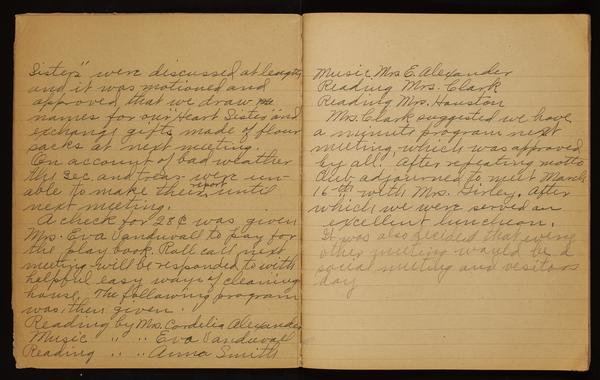 Sisters" were discussed at length
and it was motioned and
approved that we draw
names for our "Heart Sister" and
exchange gifts made of flour
sacks at next meeting.
On account of bad weather
the Sec. and Treas. were un-
able to make their report until
next meeting.
A check for 28¢ was given
Mrs. Eva Vanduvall to pay for
the play book. Roll call next
meeting will be responded to with
helpful easy ways of cleaning
house. The following program
was then given.
Reading by Mrs. Cordelia Alexander
Music " " Eva Vanduvall
Reading " " Anna Smith
Music Mrs E. Alexander
Reading Mrs. Clark
Reading Mrs. Houston
Mrs. Clark suggested we have
a minute program next
meeting which was approved
by all. After repeating motto
Club adjourned to meet March
16-th with Mrs. Girley. After
which we were served an
excellent luncheon.
It was also decided that every
other meeting would be a
social meeting and visitors
day